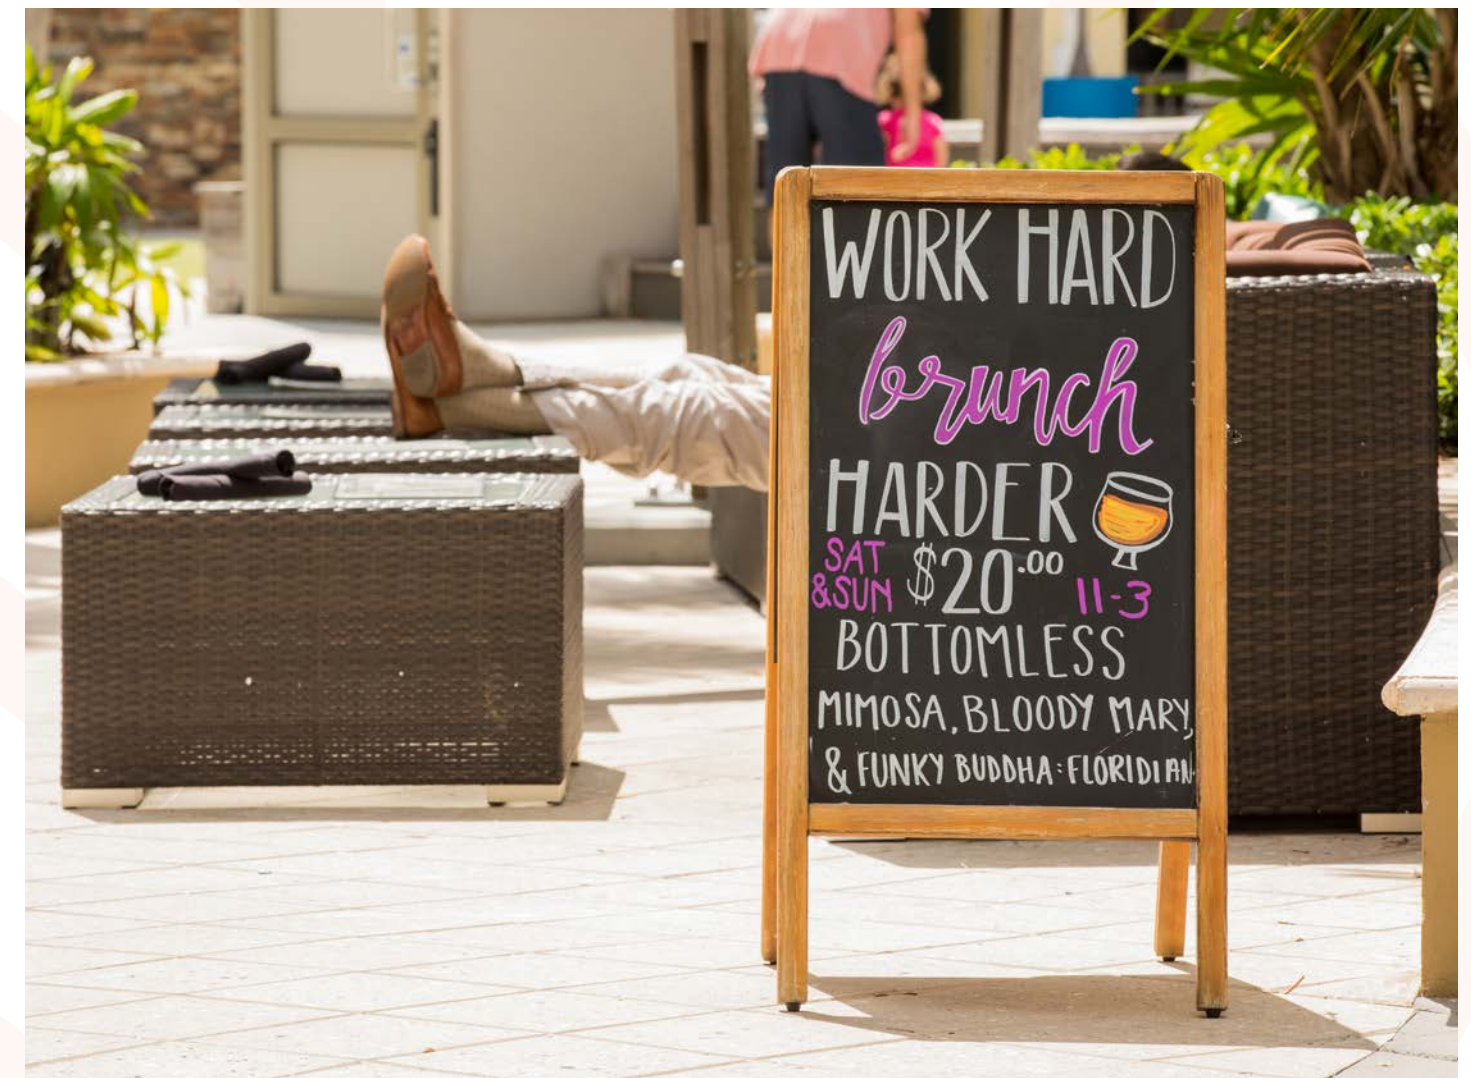 WORK HARD
brunch
HARDER
SAT
&SUN $20.00 11-3
BOTTOMLESS
MIMOSA, BLOODY MARY,
& FUNKY BUDDHA: FLORIDIAN